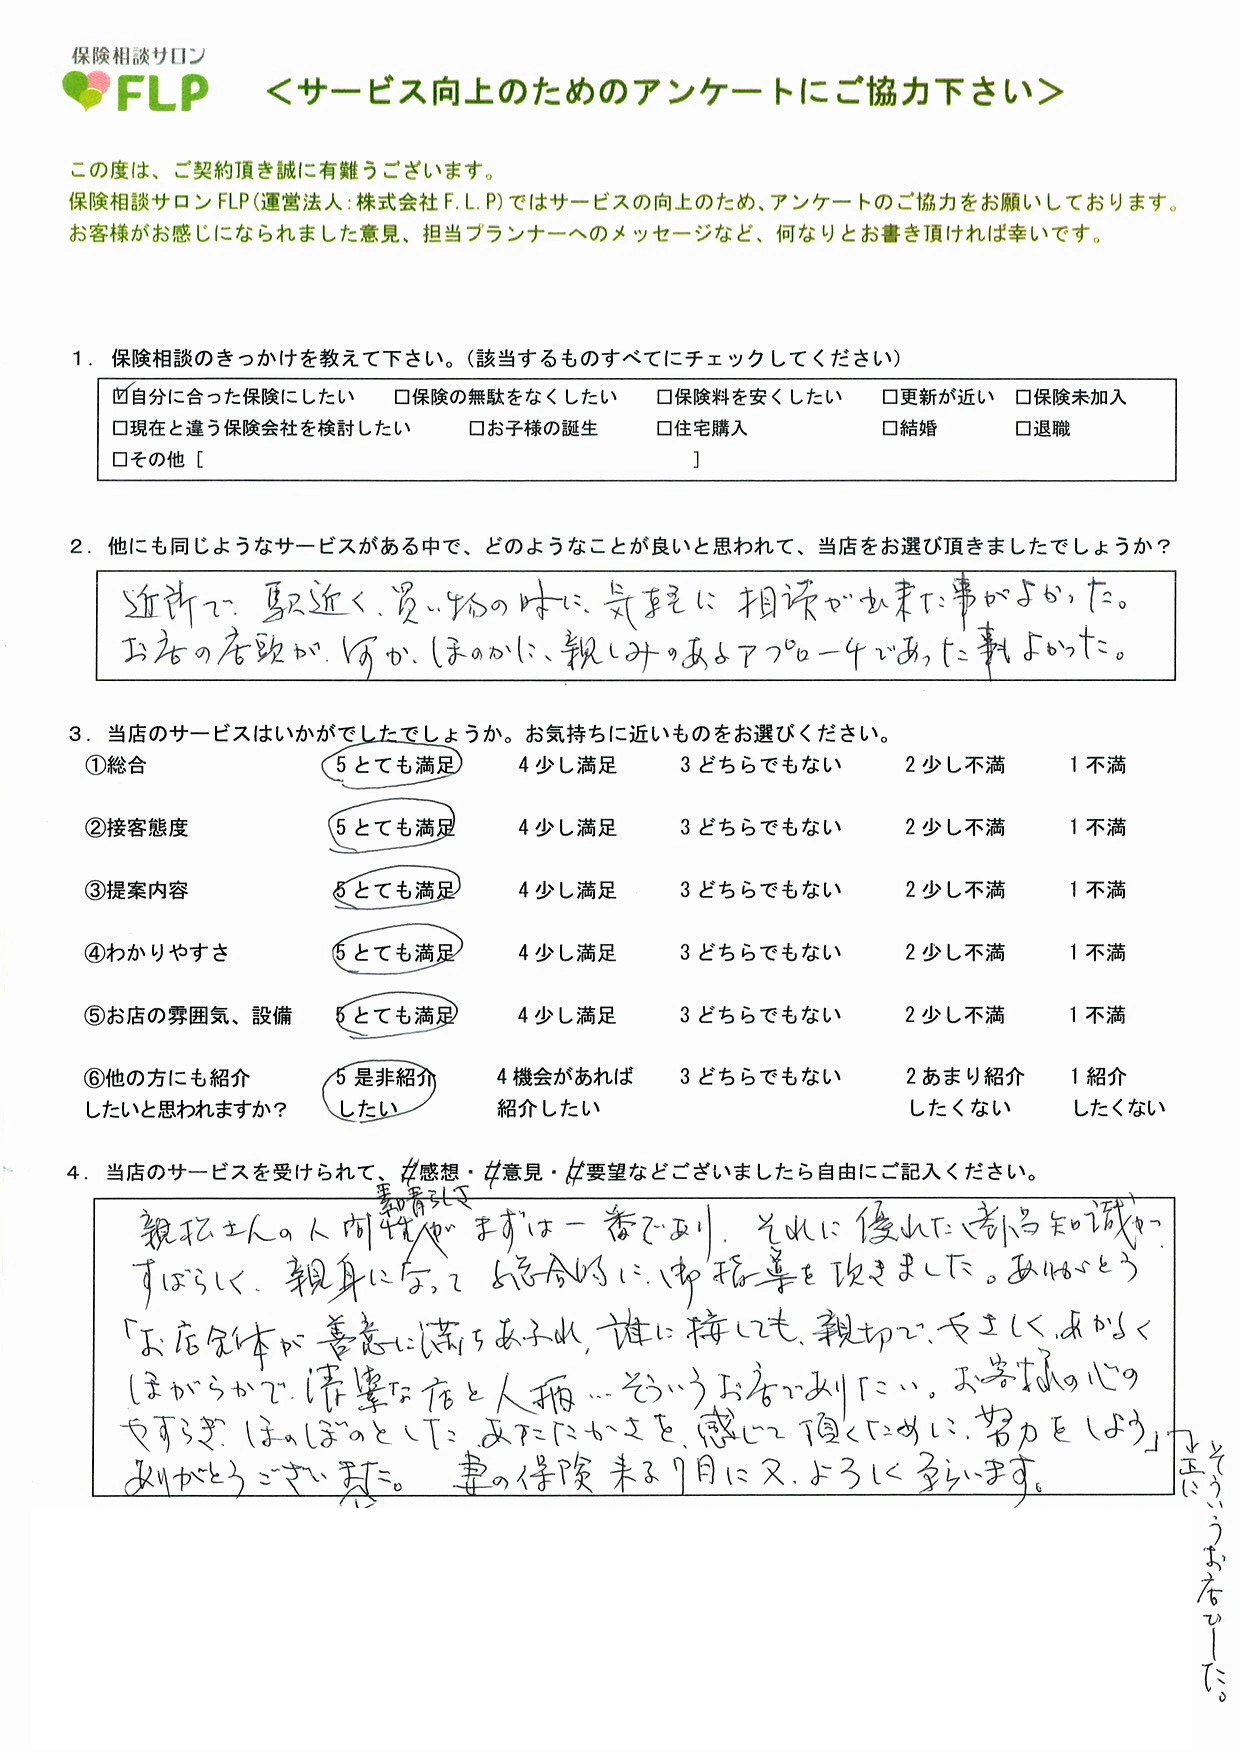 保険相談サロン
FLP
＜サービス向上のためのアンケートにご協力下さい＞
この度は、ご契約頂き誠に有難うございます。
保険相談サロンFLP(運営法人:株式会社F.L.P)ではサービスの向上のため、アンケートのご協力をお願いしております。
お客様がお感じになられました意見、担当プランナーへのメッセージなど、何なりとお書き頂ければ幸いです。
1. 保険相談のきっかけを教えて下さい。(該当するものすべてにチェックしてください)
☑自分に合った保険にしたい □保険の無駄をなくしたい □保険料を安くしたい □更新が近い □保険未加入
□現在と違う保険会社を検討したい □お子様の誕生 □住宅購入 □結婚 □退職
□その他 [ ]
2. 他にも同じようなサービスがある中で、どのようなことが良いと思われて、当店をお選び頂きましたでしょうか?
近所で、駅近く、買い物の時に、気軽に相談が出来た事がよかった。
お店の店頭が、何か、ほのかに、親しみのあるアプローチであった事もよかった。
3. 当店のサービスはいかがでしたでしょうか。お気持ちに近いものをお選びください。
①総合 5とても満足 4少し満足 3どちらでもない 2少し不満 1不満
②接客態度 5とても満足 4少し満足 3どちらでもない 2少し不満 1不満
③提案内容 5とても満足 4少し満足 3どちらでもない 2少し不満 1不満
④わかりやすさ 5とても満足 4少し満足 3どちらでもない 2少し不満 1不満
⑤お店の雰囲気、設備 5とても満足 4少し満足 3どちらでもない 2少し不満 1不満
⑥他の方にも紹介 5是非紹介 4機会があれば 3どちらでもない 2あまり紹介 1紹介
したいと思われますか? したい 紹介したい したくない したくない
4. 当店のサービスを受けられて、ご感想・ご意見・ご要望などございましたら自由にご記入ください。
素晴らしさ
親松さんの人間性がまずは一番であり、それに優れた専門知識がすばらしく、親身になって総合的に、御指導を頂きました。ありがとう
「お店全体が善意に満ちあふれ、誰に接しても、親切で、やさしく、あかるく
ほがらかで、清潔な店と人柄…そういうお店でありたい。お客様の心の
やすらぎ、ほのぼのとした、あたたかさを、感じて頂くために、努力をしよう」
正に
そういうお店でした。
ありがとうございました。 妻の保険来る7月に又、よろしく願います。